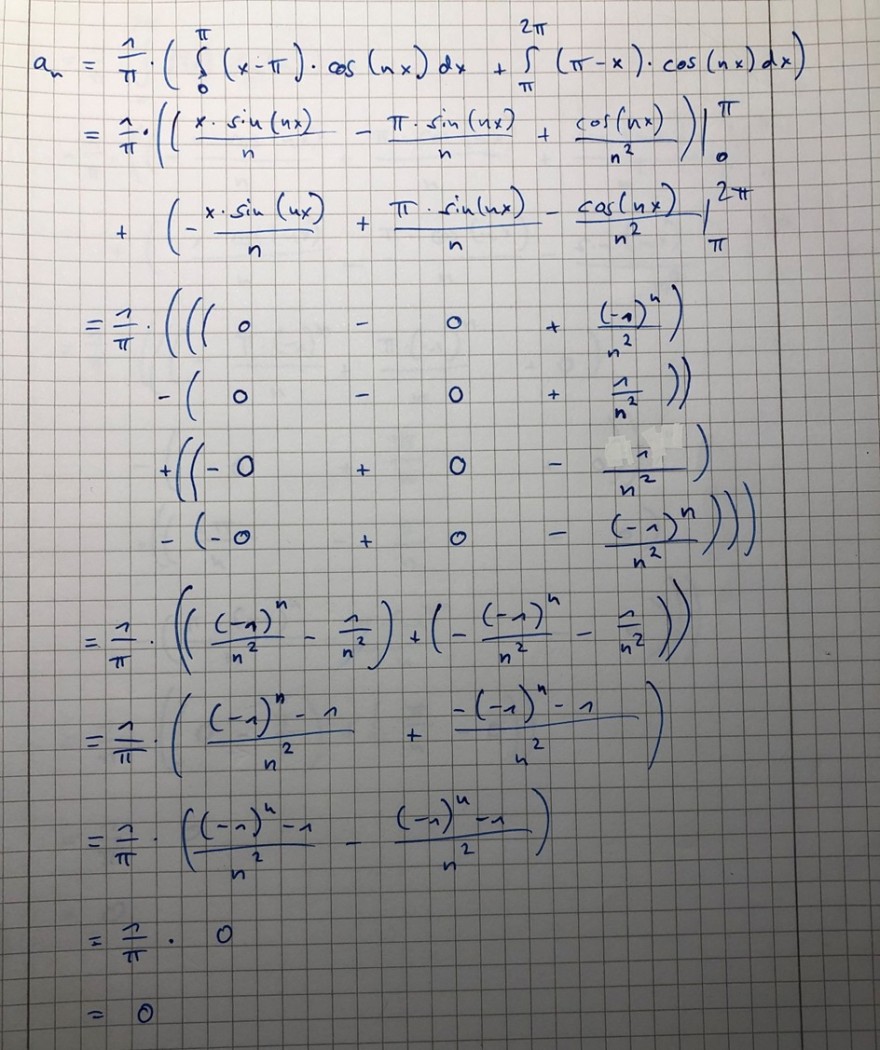 aₙ = 1/π · ( ∫₀^π (x-π) · cos (nx) dx + ∫_π^2π (π-x) · cos (nx) dx )
= 1/π · ( ( x · sin (nx)/n - π · sin (nx)/n + cos (nx)/n² ) |₀^π
+ ( - x · sin (nx)/n + π · sin(nx)/n - cos(nx)/n² |_π^2π
= 1/π · ( ( ( 0 - 0 + (-1)ⁿ/n² )
- ( 0 - 0 + 1/n² ) )
+ ( ( - 0 + 0 - 1/n² )
- ( - 0 + 0 - (-1)ⁿ/n² ) ) )
= 1/π · ( ( (-1)ⁿ/n² - 1/n² ) + ( - (-1)ⁿ/n² - 1/n² ) )
= 1/π · ( ((-1)ⁿ - 1)/n² + (-(-1)ⁿ - 1)/n² )
= 1/π · ( ((-1)ⁿ - 1)/n² - ((-1)ⁿ - 1)/n² )
= 1/π · 0
= 0